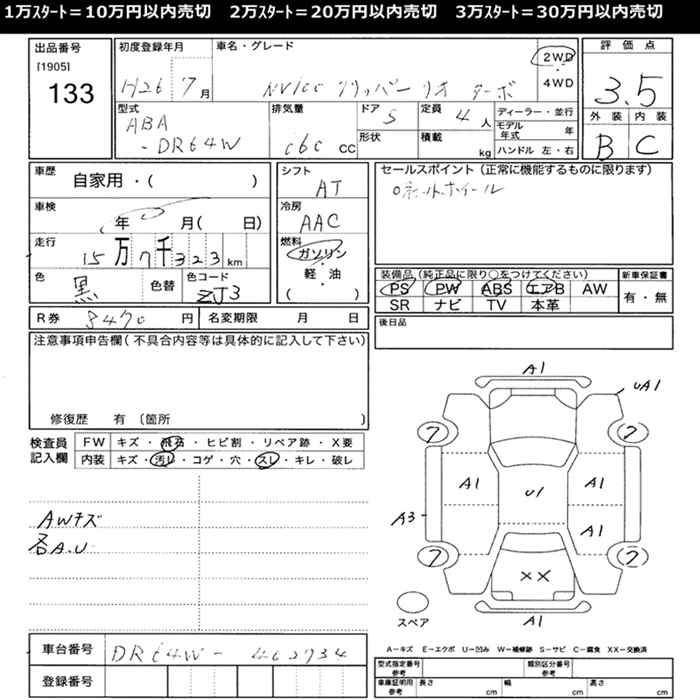 1万ｽﾀｰﾄ＝10万円以内売切　2万ｽﾀｰﾄ＝20万円以内売切　3万ｽﾀｰﾄ＝30万円以内売切
出品番号
[1905]
133
初度登録年月
H26 7月
車名・グレード
NV100 クリッパー リオ ターボ
2WD
・
4WD
評価点
3.5
外装 内装
B C
型式
ABA
-DR64W
排気量
660 cc
ドア 5
形状
定員 4人
積載 kg
ディーラー・並行
モデル年式 年
ハンドル 左・右
車歴
自家用・( )
車検
年 月( 日)
走行
15万7千323km
色 黒 色替
色コード ZJ3
シフト
AT
冷房
AAC
燃料
ガソリン
・
軽・油
( )
セールスポイント（正常に機能するものに限ります）
装備品（純正品に限り○をつけてください）
PS PW ABS エアB AW
SR ナビ TV 本革
新車保証書
有・無
R券 8470 円 名変期限 月 日
後日品
注意事項申告欄（不具合内容等は具体的に記入して下さい）
修復歴 有〔箇所 〕
検査員
記入欄
FW キズ・飛石・ヒビ割・リペア跡・X要
内装 キズ・汚レ・コゲ・穴・スレ・キレ・破レ
AWキズ
各A.U
A1
UA1
7 7
A1 U1 A1
A3 A1
7 7
XX
A1
スペア
A－キズ E－エクボ U－凹み W－補修跡 S－サビ C－腐食 XX－交換済
車台番号 DR64W-402734
登録番号
型式指定番号
参考
類別区分番号
参考
車庫証明用
参考
長さ cm 幅 cm 高さ cm